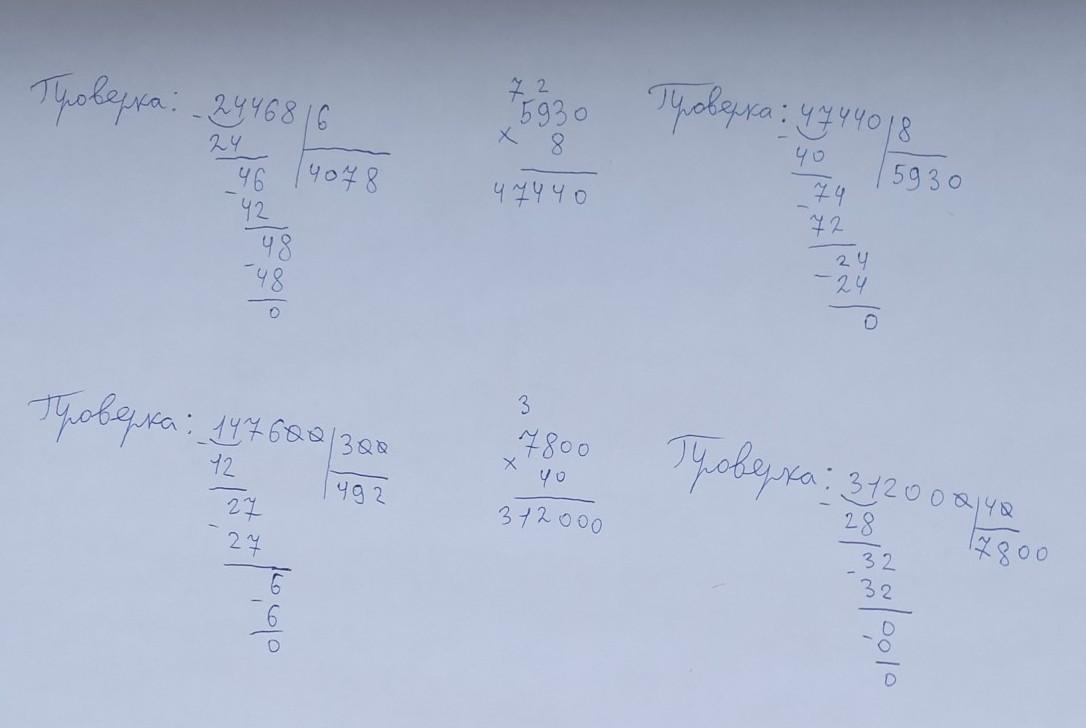 Проверка: 24468 | 6
- 24
4078
46
- 42
48
- 48
0
7 2
5930
× 8
47440
Проверка: 47440 | 8
- 40
5930
74
- 72
24
- 24
0
Проверка: 147600 | 300
- 12
492
27
- 27
6
- 6
0
3
7800
× 40
312000
Проверка: 312000 | 40
- 28
7800
32
- 32
0
- 0
0